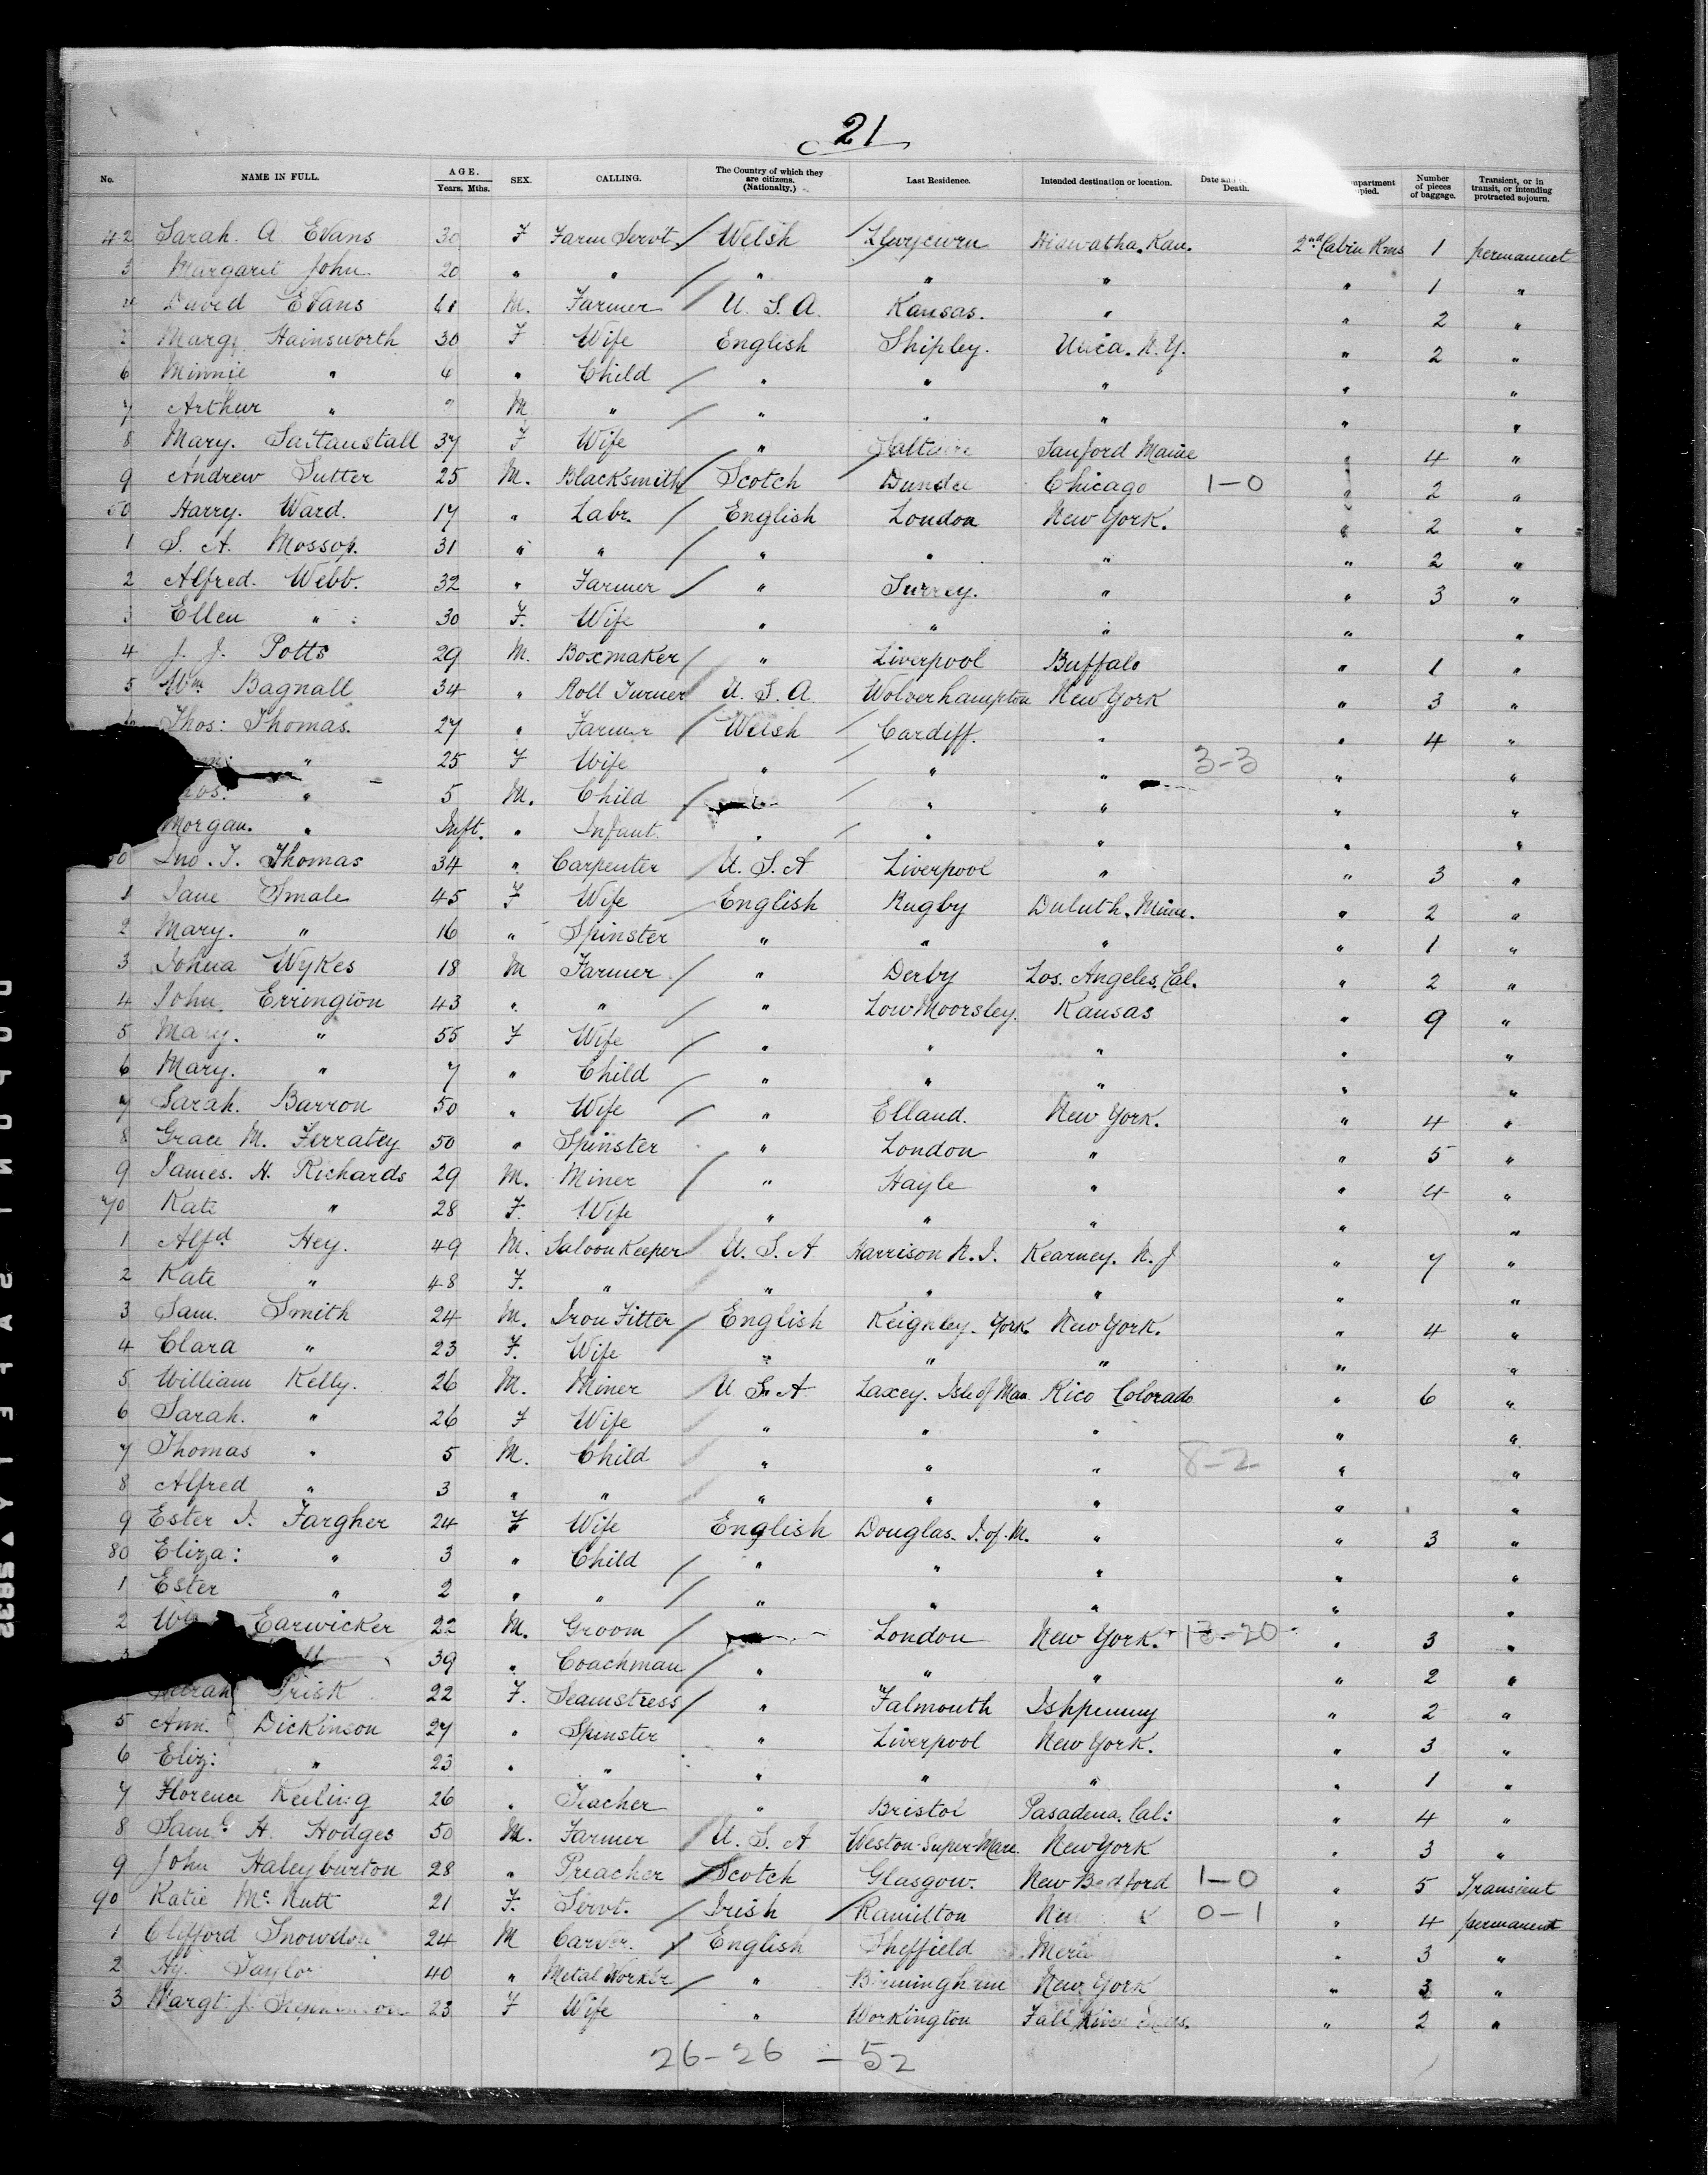 21
No. NAME IN FULL. AGE. Years. Mths. SEX. CALLING. The Country of which they are citizens. (Nationality.) Last Residence. Intended destination or location. Date and Death. mpartment pied. Number of pieces of baggage. Transient, or in transit, or intending protracted sojourn.
42 Sarah. A. Evans 30 F Farm Servt. / Welsh / Hiawatha. Kan. 2nd Cabin Rms 1 permanent
3 Margaret John 20 " " / " " " " 1 "
4 David Evans M. Farmer / U. S. A. Kansas. " " 2 "
Hainsworth 30 F Wife English Shipley. Utica. N.Y. " 2 "
6 Minnie " 4 " Child / " " " " "
7 Arthur " M " / " " " " "
8 Mary. Saltanstall 37 F Wife " Sanford Maine " 4 "
9 Andrew Sutter 25 M. Blacksmith / Scotch / Dundee Chicago 1-0 " 2 "
50 Harry. Ward. 17 " Labr. / English London New York. " 2 "
1 S. A. Mossop. 31 " " / " " " " 2 "
2 Alfred. Webb. 32 " Farmer / " Surrey. " " 3 "
3 Ellen " 30 F. Wife " " " " "
4 J. J. Potts 29 M. Boxmaker / " Liverpool Buffalo " 1 "
5 Wm. Bagnall 34 " Roll Turner / U. S. A. Wolverhampton New York " 3 "
Thos: Thomas. 27 " Farmer / Welsh / Cardiff. " " 4 "
" 25 F Wife " / " " 3-3 " "
" 5 M. Child / / " " " "
Morgan. " Inft. " Infant. " / " " " "
60 Jno. T. Thomas 34 " Carpenter / U. S. A Liverpool " " 3 "
1 Jane Smale 45 F Wife / English Rugby Duluth. Minn. " 2 "
2 Mary. " 16 " Spinster " " " " 1 "
3 Johua Wykes 18 M Farmer. / " Derby Los. Angeles. Cal. " 2 "
4 John. Errington 43 " " / " Low Moorsley. Kansas " 9 "
5 Mary. " 55 F Wife / " " " " "
6 Mary. " 7 " Child / " " " " "
7 Sarah. Barron 50 " Wife / " Elland. New York. " 4 "
8 Grace M. Ferratey 50 " Spinster " London " " 5 "
9 James. H. Richards 29 M. Miner / " Hayle " " 4 "
70 Kate " 28 F. Wife " " " " "
1 Alfd Hey. 49 M. Saloon Keeper / U. S. A Harrison N. J. Kearney. N. J " 7 "
2 Kate " 48 F. " " " " " "
3 Sam. Smith 24 M. Iron Fitter / English Keighley. York. New York. " 4 "
4 Clara " 23 F. Wife " " " " "
5 William Kelly. 26 M. Miner / U. S. A Laxey. Isle of Man Rico Colorado " 6 "
6 Sarah. " 26 F Wife " " " " "
7 Thomas " 5 M. Child " " " 8-2 " "
8 Alfred " 3 " " " " " " "
9 Ester J. Fargher 24 F Wife English Douglas. I. of. M. " " 3 "
80 Eliza: " 3 " Child / " " " " "
1 Ester " 2 " " / " " " " "
2 Earwicker 22 M. Groom / London New York. 13-20 " 3 "
39 " Coachman / " " " " 2 "
Prisk 22 F. Seamstress / " Falmouth Ishpenny " 2 "
5 Ann. Dickinson 27 " Spinster " Liverpool New York. " 3 "
6 Eliz: " 23 " " " " " " 1 "
7 Florence Keeling 26 " Teacher " Bristol Pasadena. Cal: " 4 "
8 Saml. H. Hodges 50 M. Farmer / U. S. A Weston-Super-Mare. New York " 3 "
9 John Haleyburton 28 " Preacher / Scotch Glasgow. New Bedford 1-0 " 5 Transient
90 Katie McNutt 21 F. Servt. / Irish / Ramilton 0-1 " 4 permanent
1 Clifford Snowdon 24 M Carver. / English Sheffield " 3 "
2 Hy. Taylor 40 " Metal Worker / " Birmingham New York " 3 "
3 Margt. J. 23 F Wife " Workington Fall River " 2 "
26-26 - 52